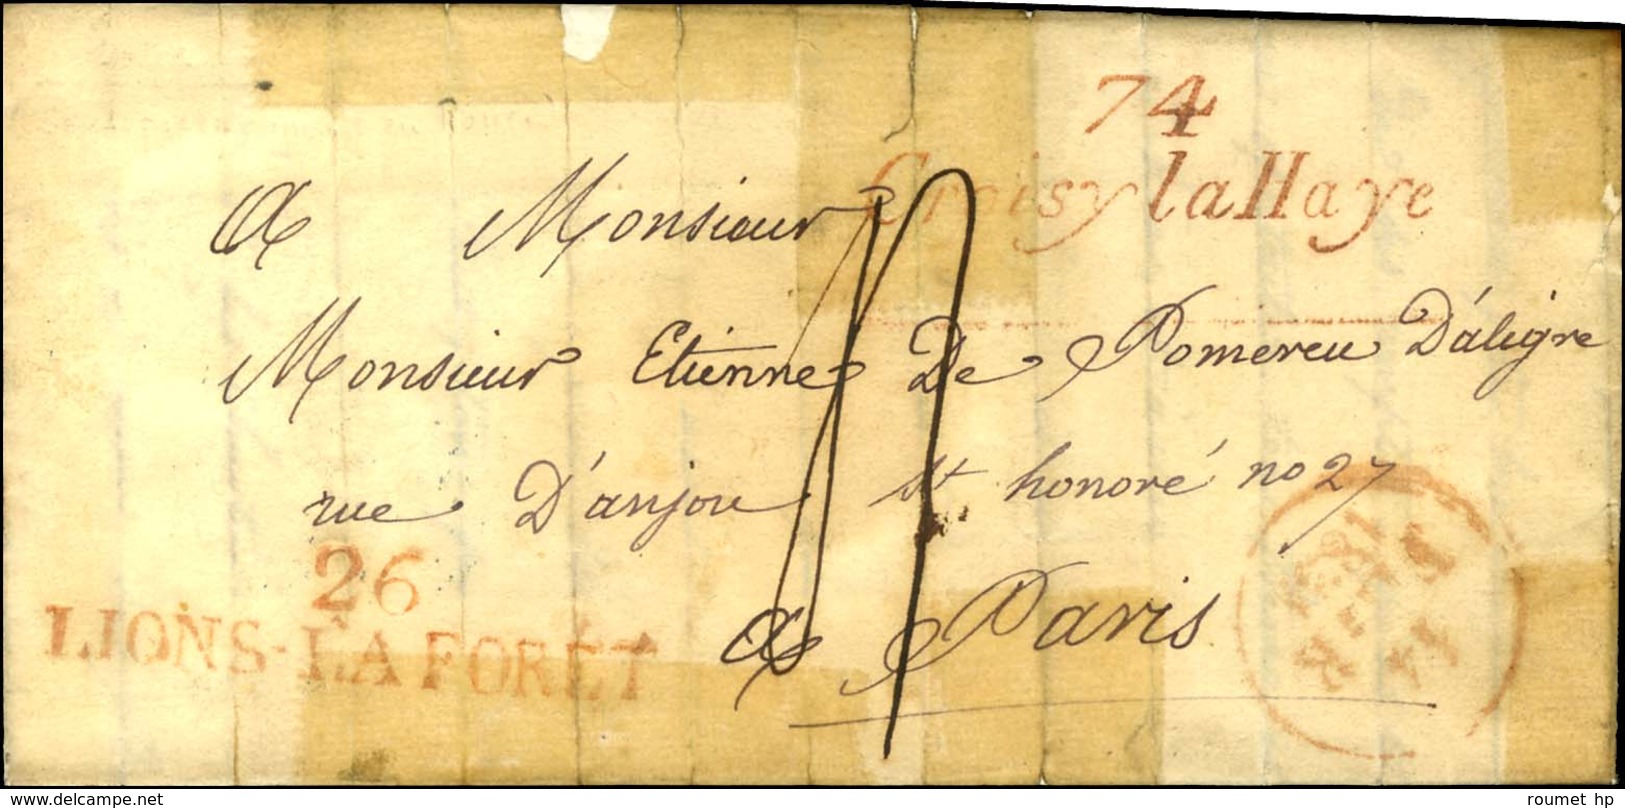 74
Croisy la Haye
a Monsieur
Monsieur Etienne De Pomereu D'aligre
rue D'anjou St honoré no 27
26
LIONS-LA FORÊT
a Paris
delcampe.net
roumet hp